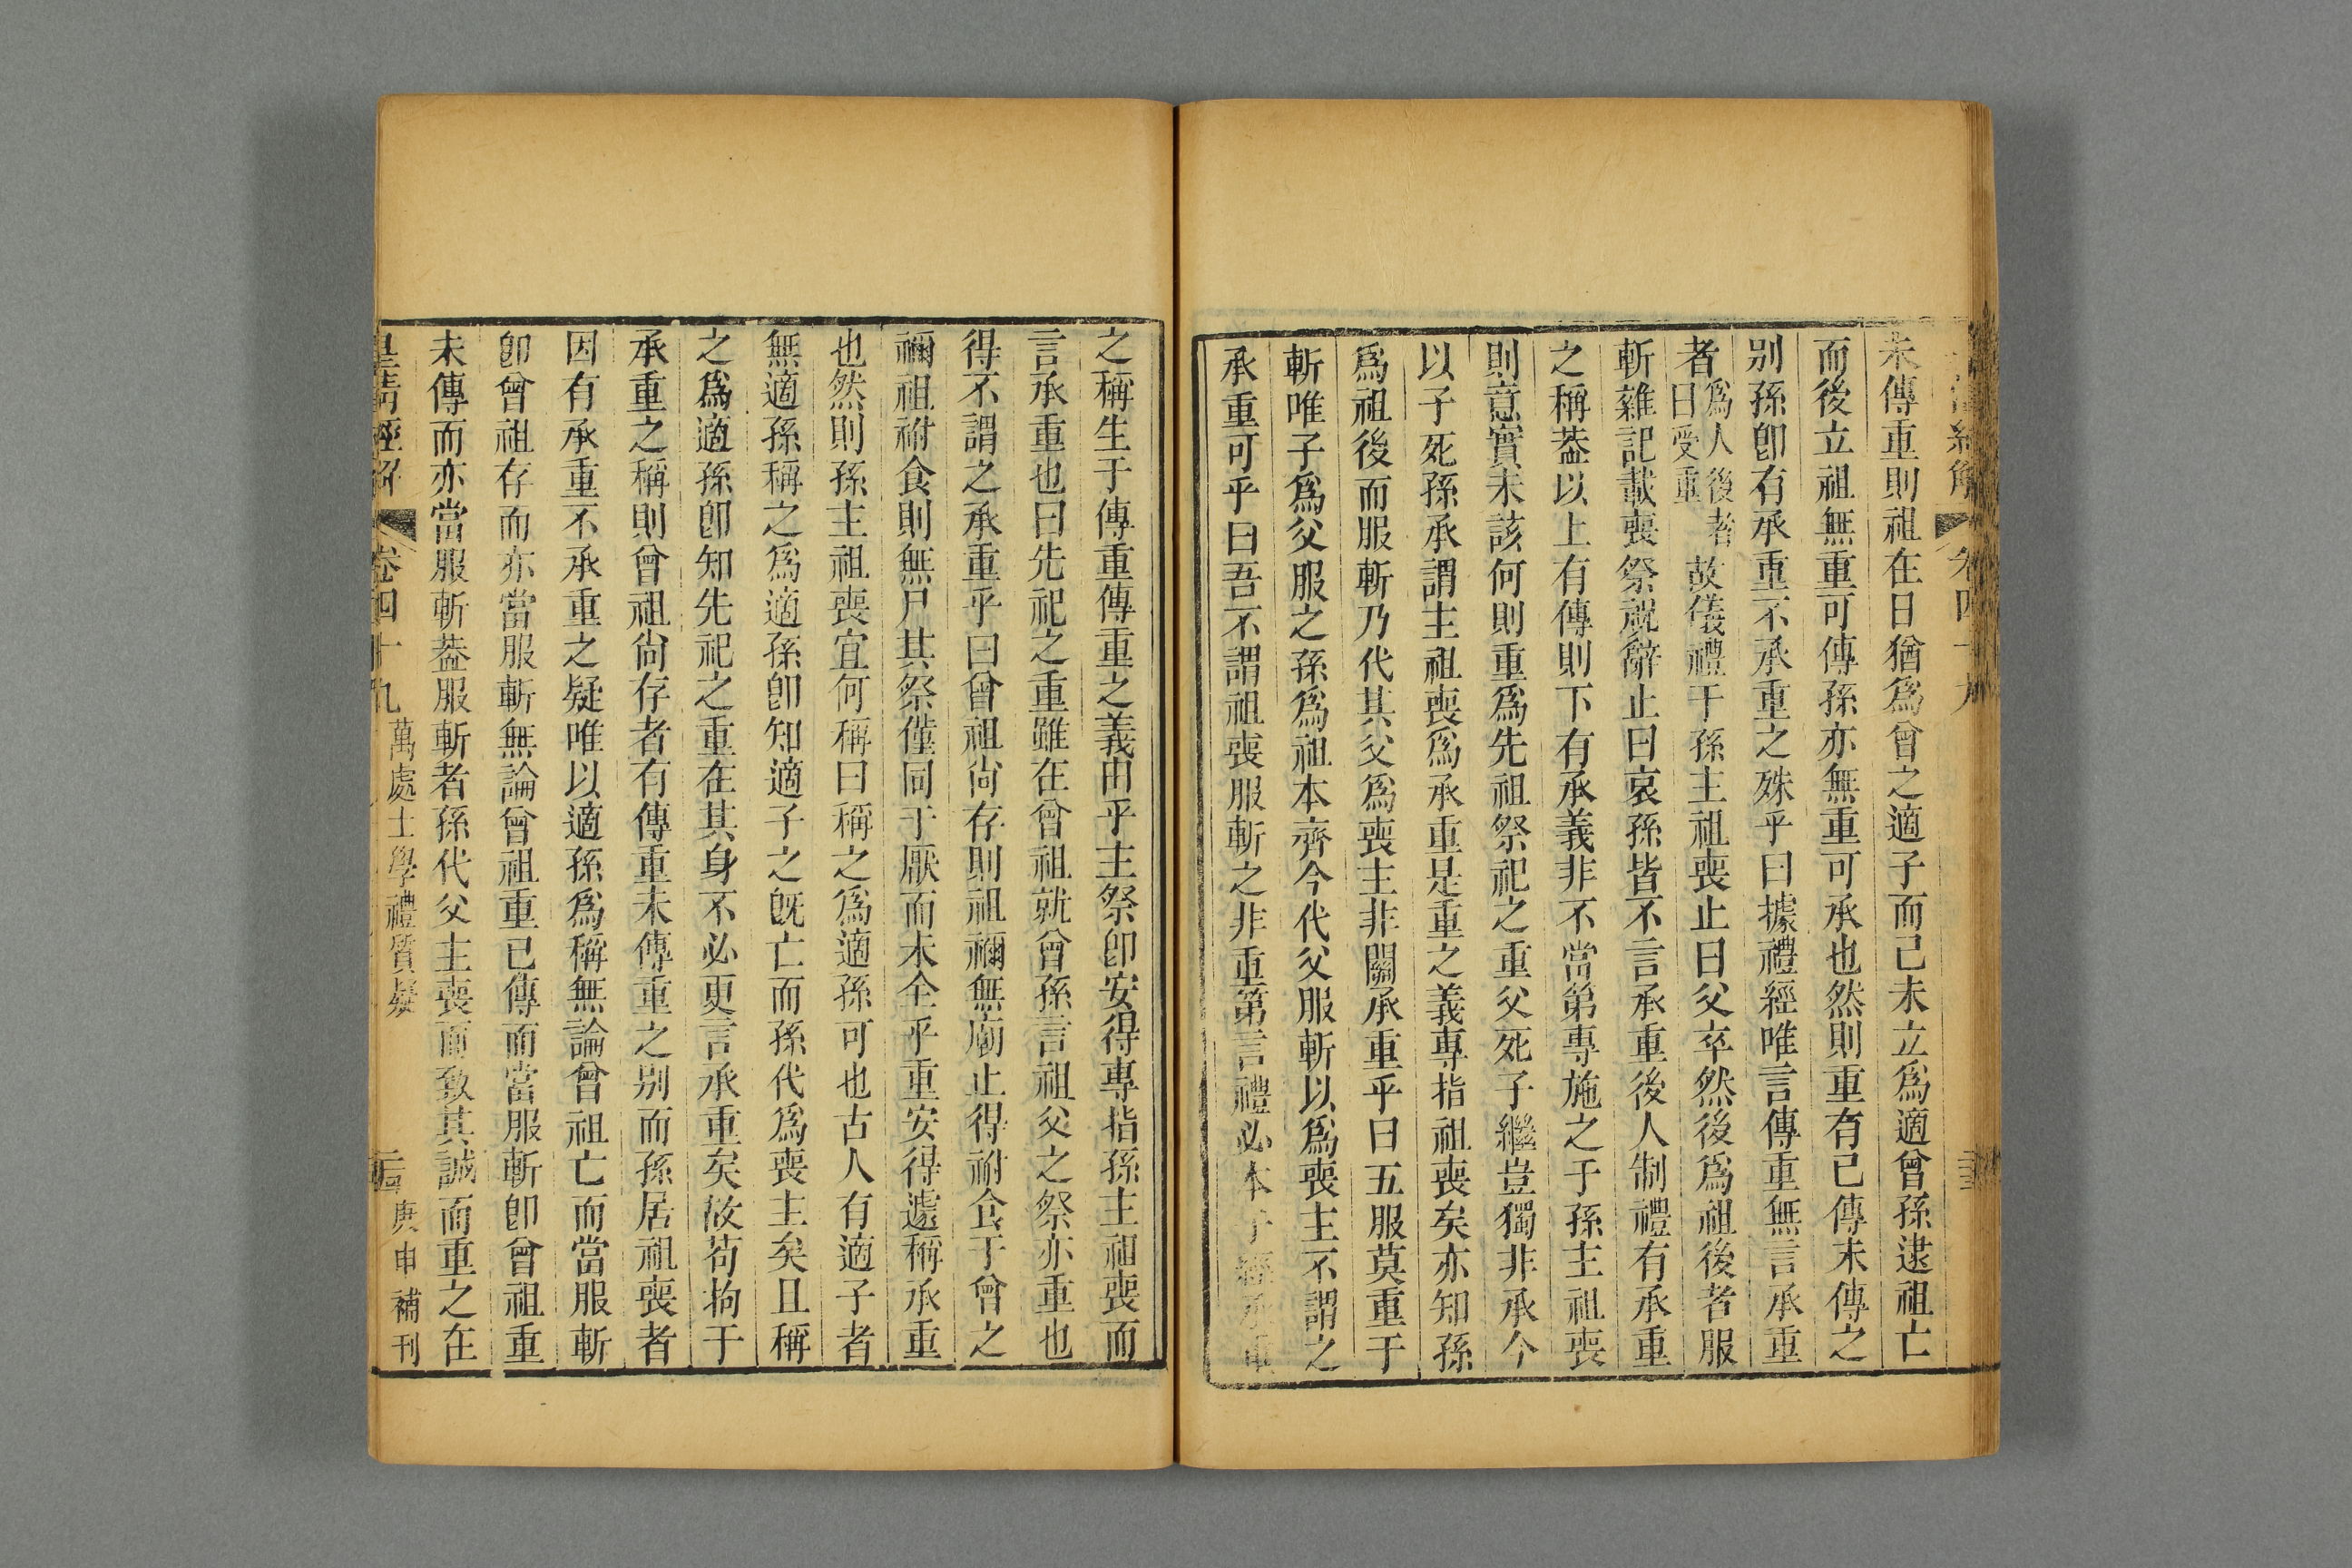 未傳重則祖在日猶爲曾之適子而己未立爲適曾孫逮祖亡
而後立祖無重可傳孫亦無重可承也然則重有已傳未傳之
别孫卽有承重不承重之殊乎曰據禮經唯言傳重無言承重
者爲人後者曰受重故儀禮于孫主祖喪止曰父卒然後爲祖後者服
斬雜記載喪祭祝辭止曰哀孫皆不言承重後人制禮有承重
之稱葢以上有傳則下有承義非不當第專施之于孫主祖喪
則意實未該何則重爲先祖祭祀之重父死子繼豈獨非承今
以子死孫承謂主祖喪爲承重是重之義專指祖喪矣亦知孫
爲祖後而服斬乃代其父爲喪主非關承重乎曰五服莫重于
斬唯子爲父服之孫爲祖本齊今代父服斬以爲喪主不謂之
承重可乎曰吾不謂祖喪服斬之非重第言禮必本于經承重
之稱生于傳重傳重之義由乎主祭卽安得專指孫主祖喪而
言承重也曰先祀之重雖在曾祖就曾孫言祖父之祭亦重也
得不謂之承重乎曰曾祖尙存則祖禰無廟止得祔食于曾之
禰祖祔食則無尸其祭僅同于厭而未全乎重安得遽稱承重
也然則孫主祖喪宜何稱曰稱之爲適孫可也古人有適子者
無適孫稱之爲適孫卽知適子之旣亡而孫代爲喪主矣且稱
之爲適孫卽知先祀之重在其身不必更言承重矣故苟拘于
承重之稱則曾祖尙存者有傳重未傳重之别而孫居祖喪者
因有承重不承重之疑唯以適孫爲稱無論曾祖亡而當服斬
卽曾祖存而亦當服斬無論曾祖重已傳而當服斬卽曾祖重
未傳而亦當服斬葢服斬者孫代父主喪而致其誠而重之在
皇清經解 卷四十九 萬處士學禮質疑 庚申補刊